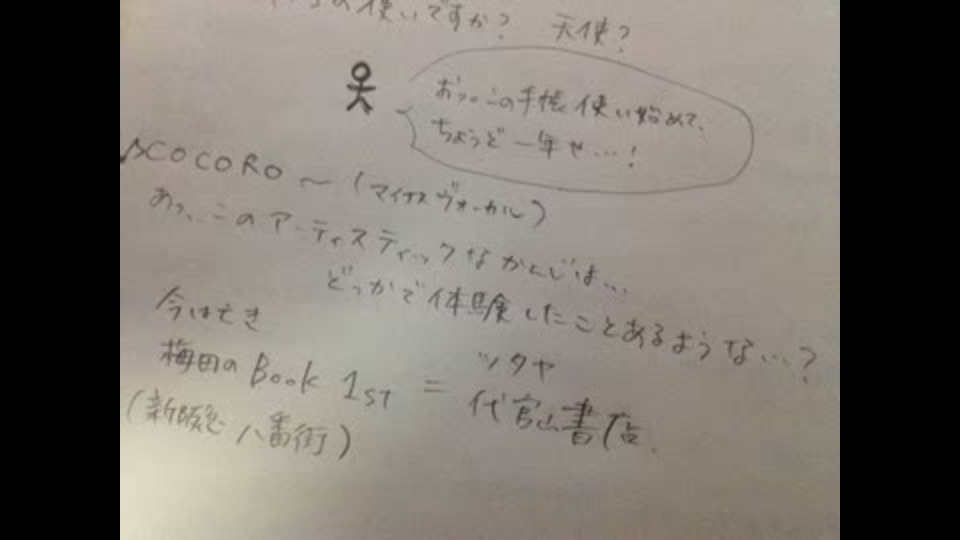 の使いですか? 天使?
おっ。この手帳使い始めて、
ちょうど一年や…!
COCORO〜(マイナスヴォーカル)
あっ、このアーティスティックなかんじは…
どっかで体験したことあるような…?
今は亡き
梅田の Book 1st = 代官山書店.
ツタヤ
(新阪急 八番街)